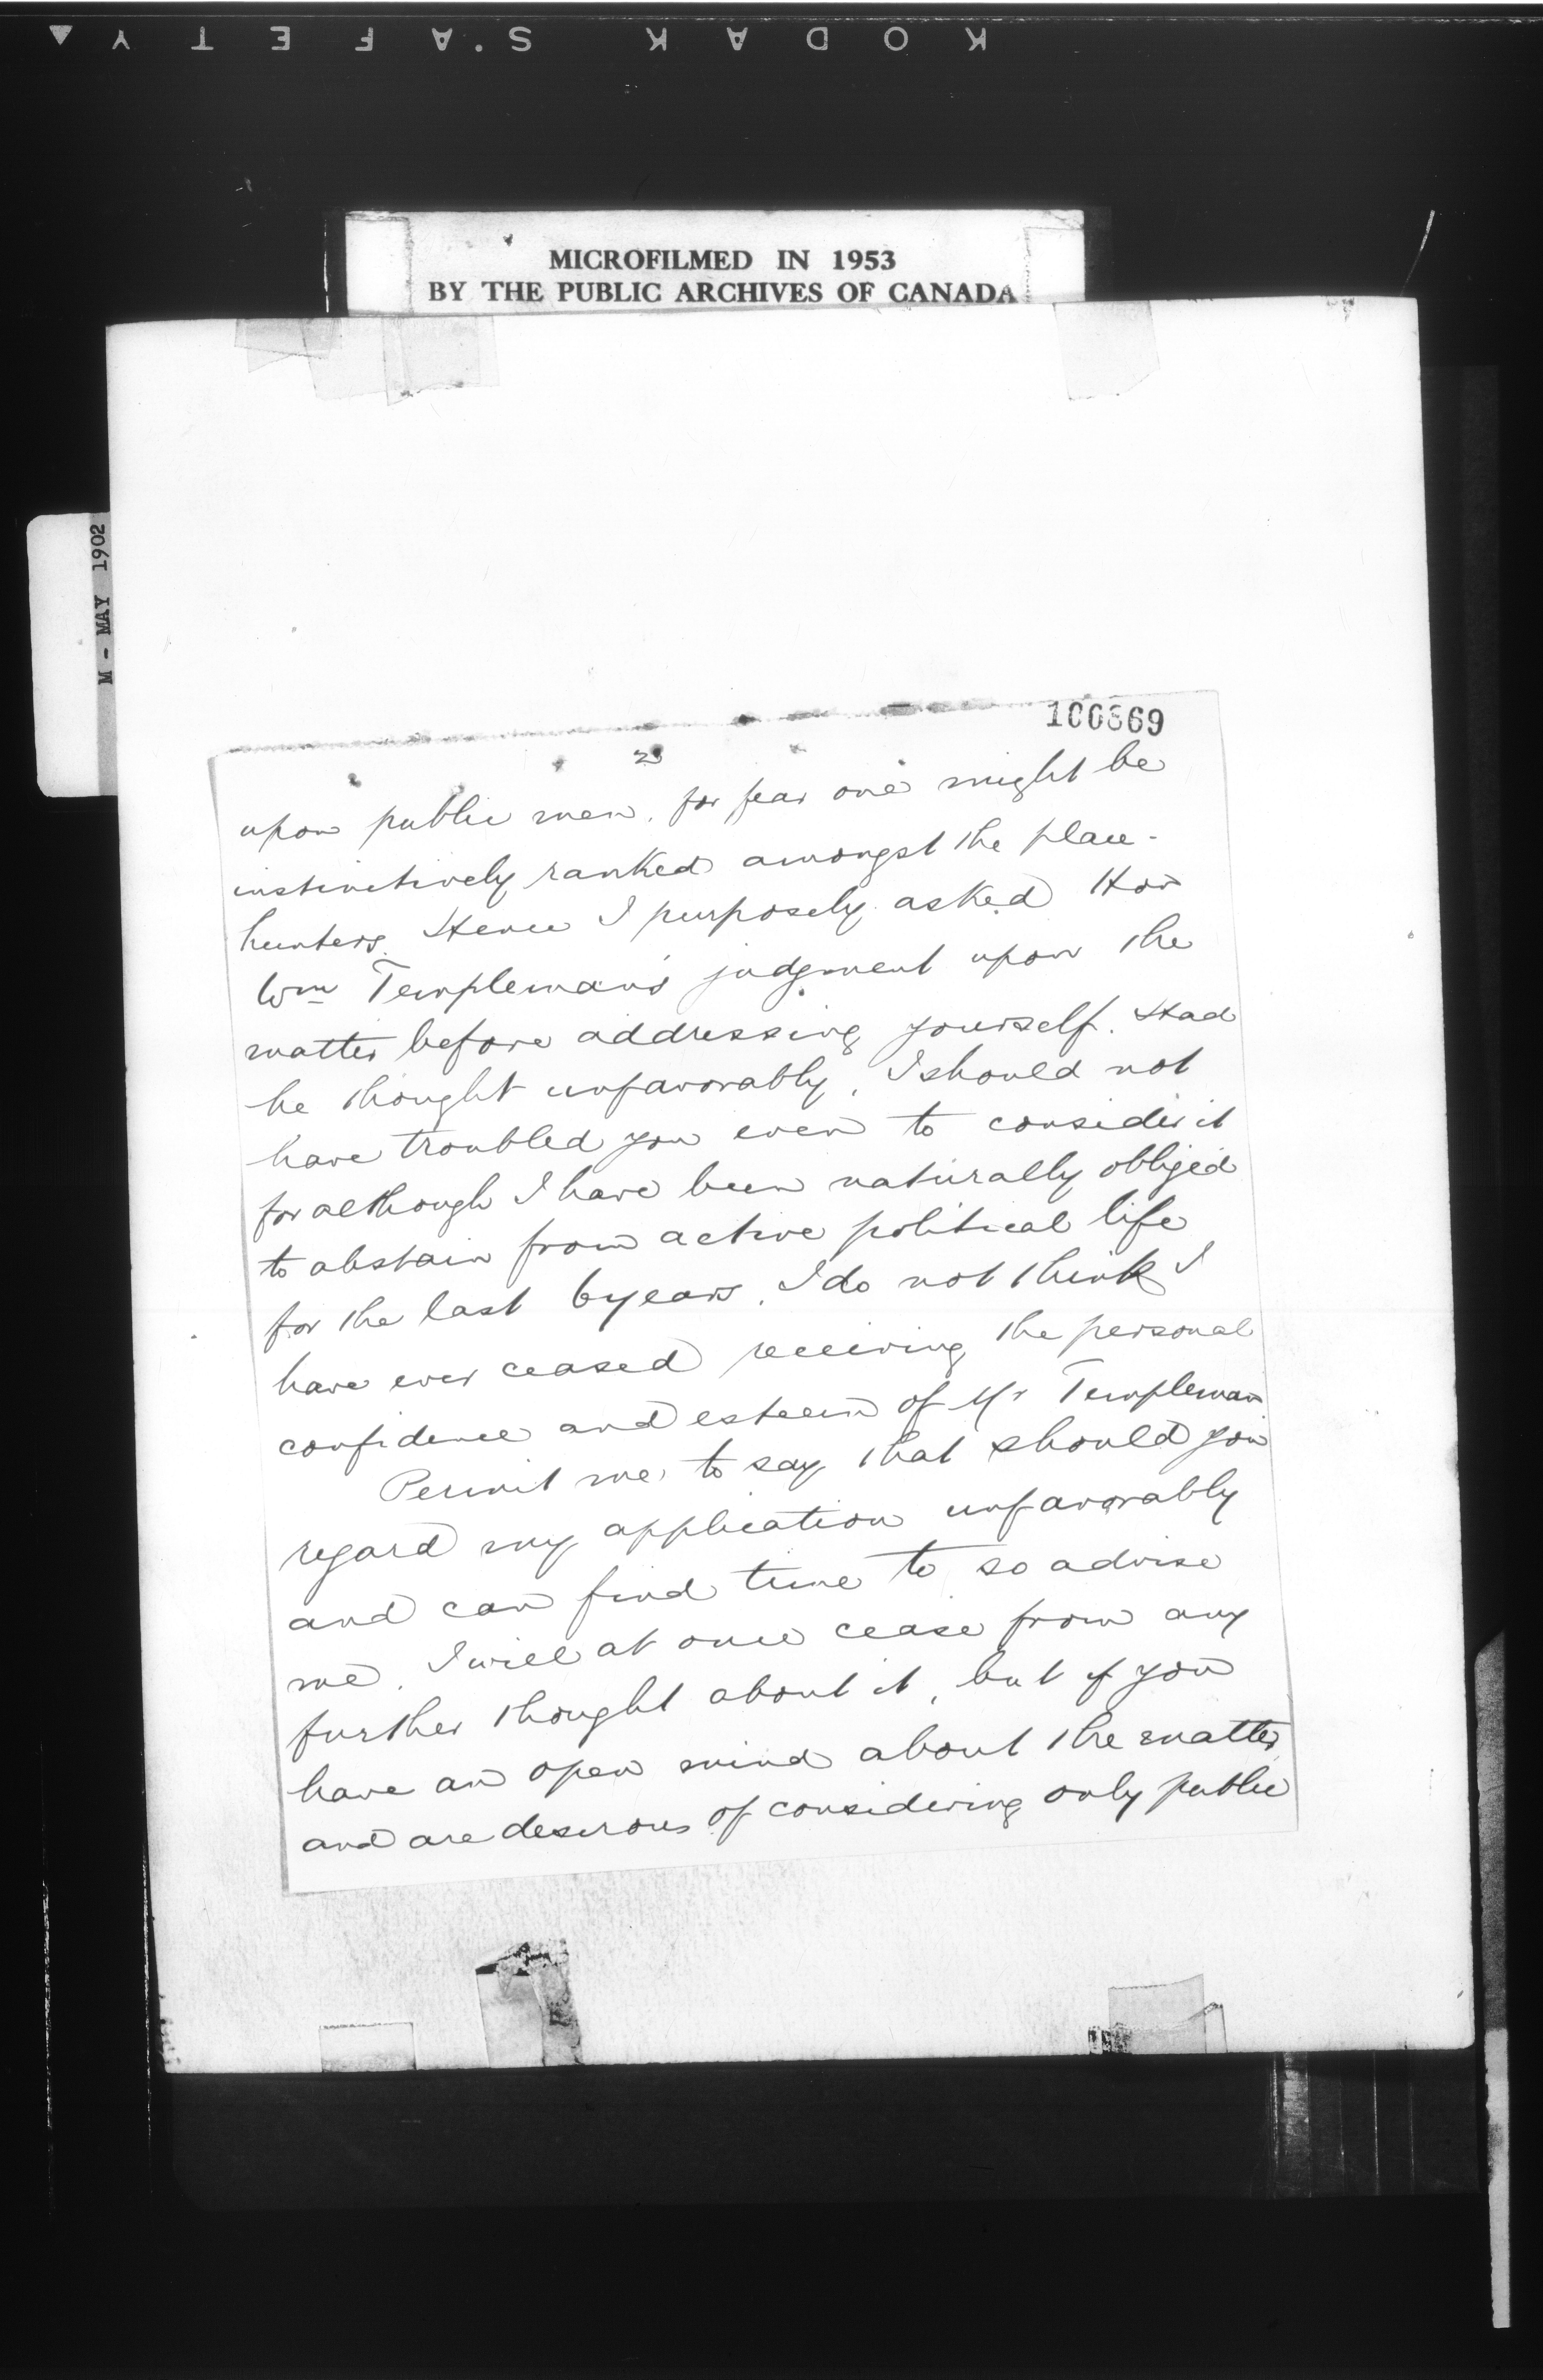 KODAK SAFETY
MICROFILMED IN 1953
BY THE PUBLIC ARCHIVES OF CANADA
M - MAY 1902
100869
upon public men, for fear one might be
instinctively ranked amongst the place-
hunters. Hence I purposely asked Hon
Wm Templeman's judgment upon the
matter before addressing yourself. Had
he thought unfavorably, I should not
have troubled you even to consider it
for although I have been naturally obliged
to abstain from active political life
for the last 6 years, I do not think I
have ever ceased receiving the personal
confidence and esteem of Mr Templeman
Permit me to say that should you
regard my application unfavorably
and can find time to so advise
me, I will at once cease from any
further thought about it, but if you
have an open mind about the matter,
and are desirous of considering only public